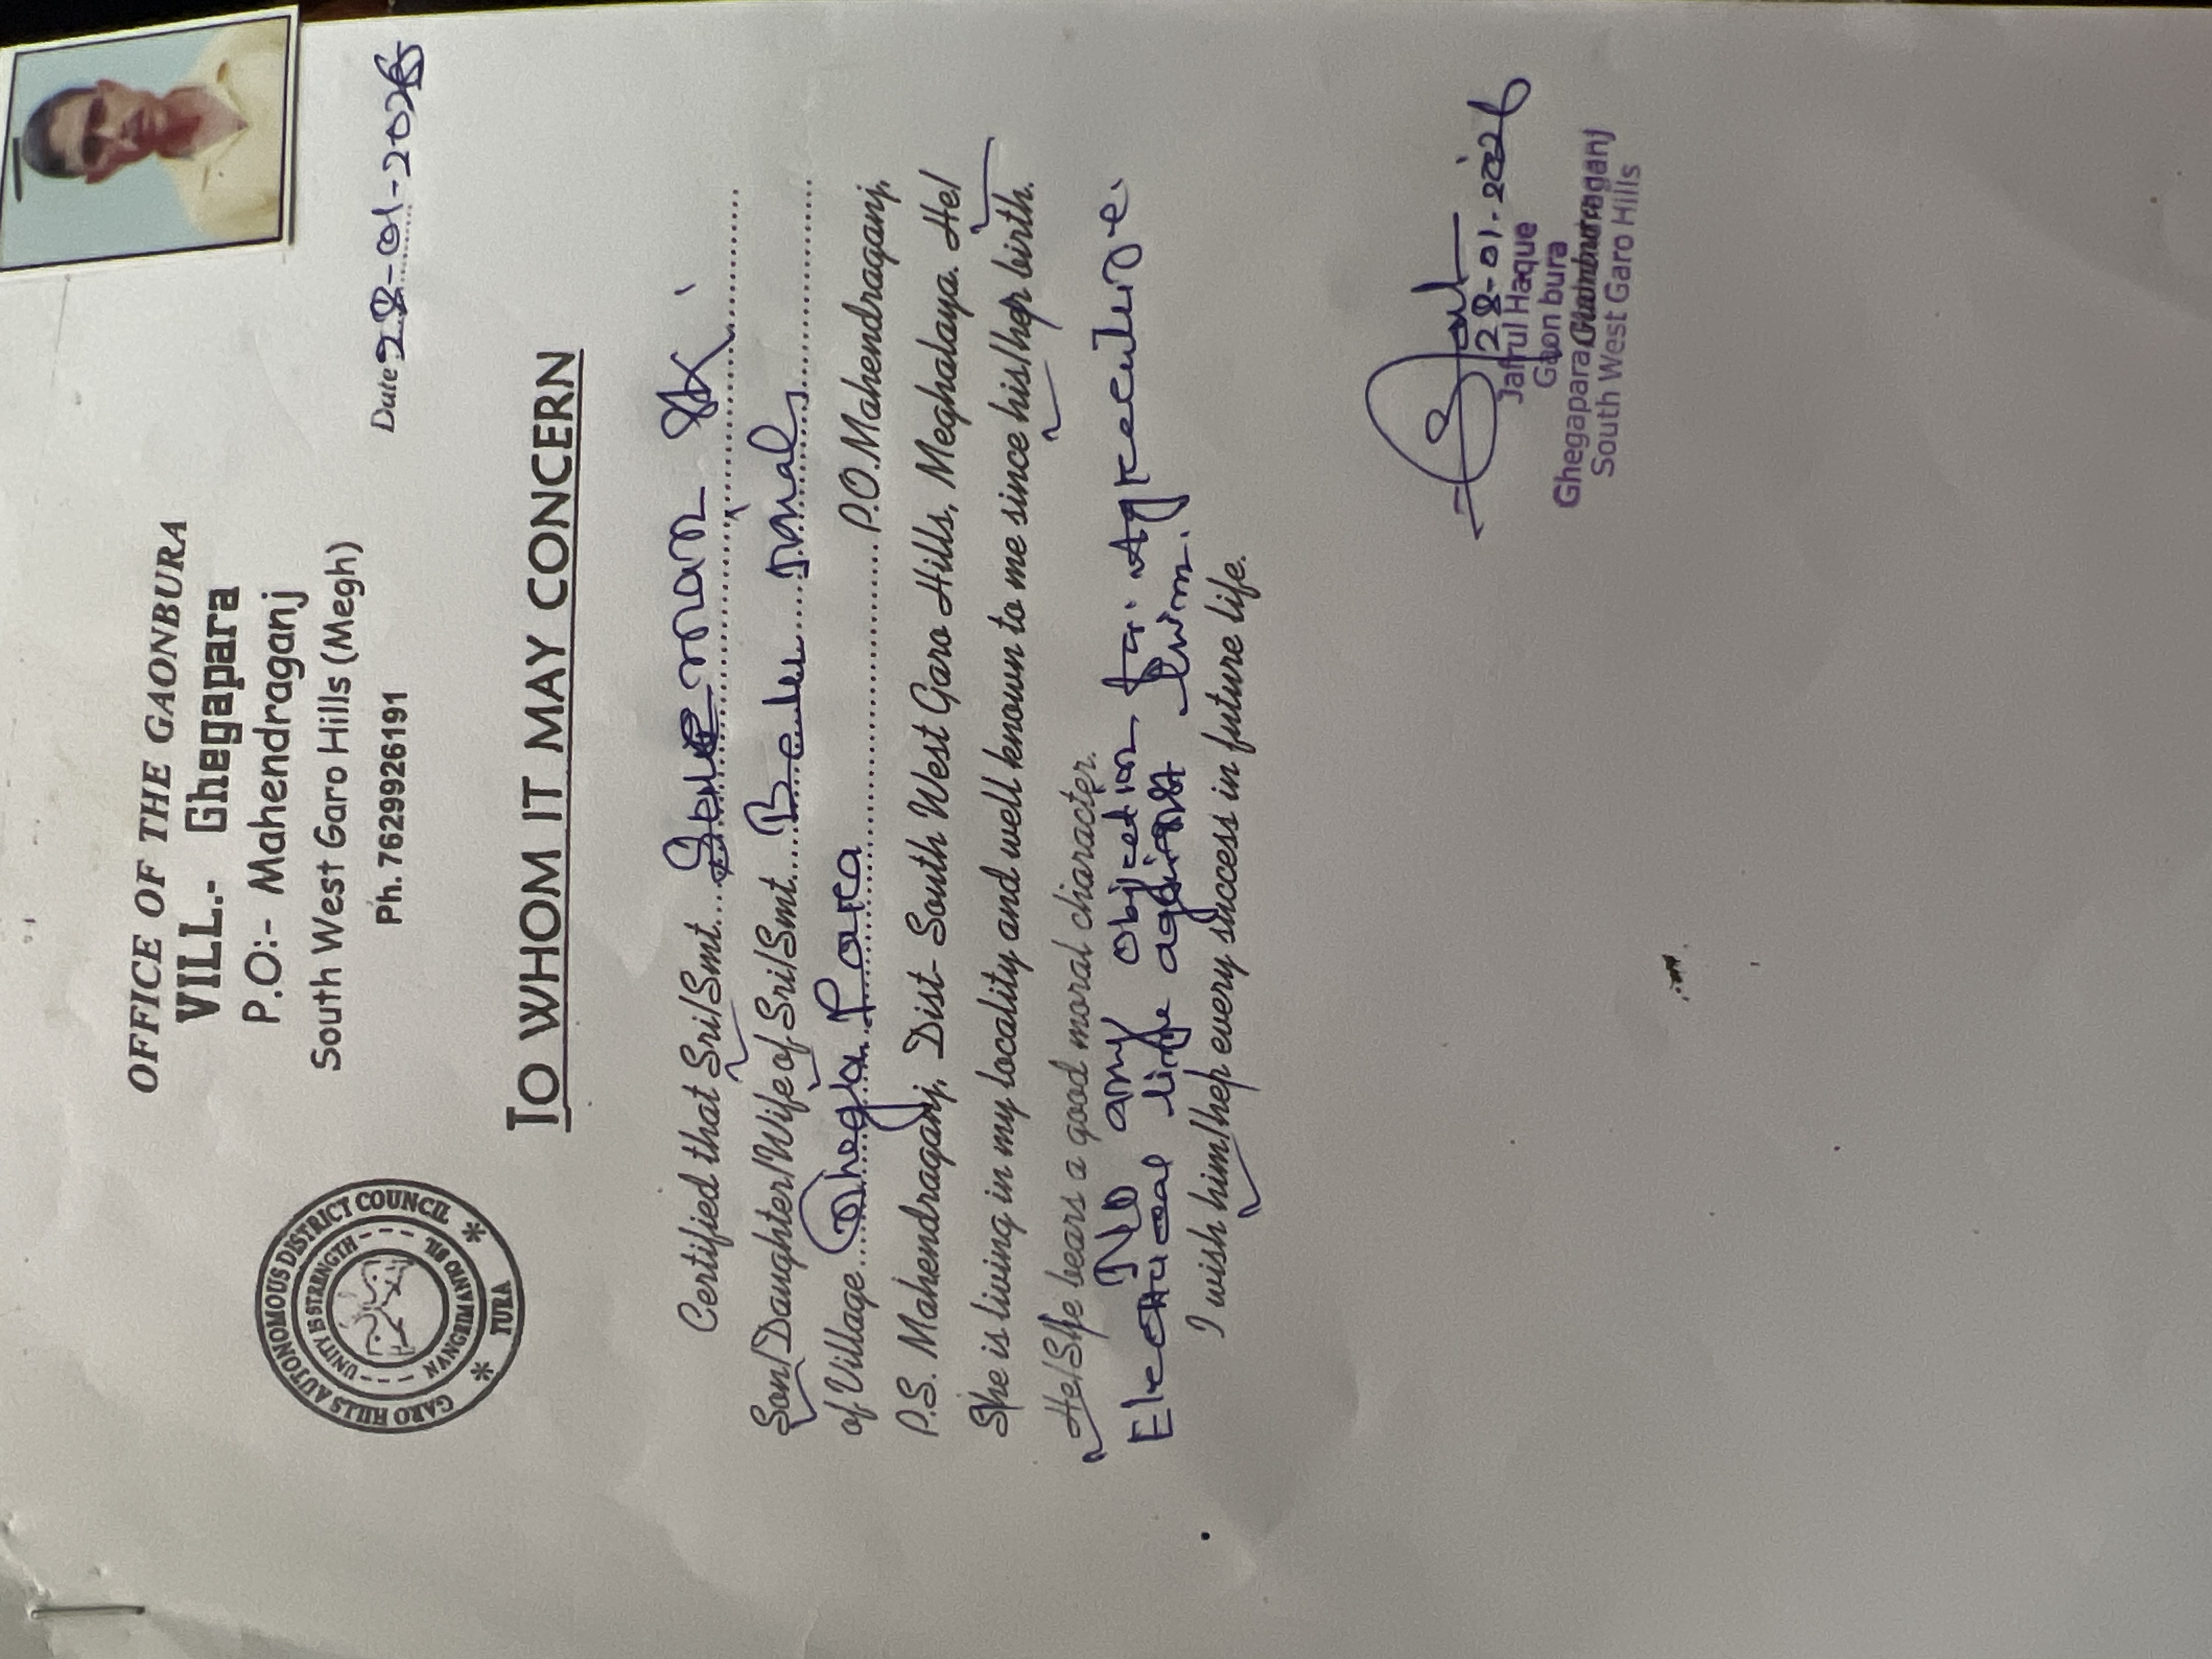 OFFICE OF THE GAONBURA
VILL.- Ghegapara
P.O:- Mahendraganj
South West Garo Hills (Megh)
Ph. 7629926191
GARO HILLS AUTONOMOUS DISTRICT COUNCIL
UNITY IS STRENGTH
TURA
Date 28-01-2026
TO WHOM IT MAY CONCERN
Certified that Sri/Smt. SK
Son/Daughter/Wife of Sri/Smt.
of Village Ghega Para P.O.Mahendraganj,
P.S. Mahendraganj, Dist- South West Garo Hills, Meghalaya. He/
She is living in my locality and well known to me since his/her birth.
He/She bears a good moral character.
No any objection for Agreculure
Electrical line against him.
I wish him/her every success in future life.
28-01-2026
Jafrul Haque
Gaon bura
Ghegapara,
South West Garo Hills